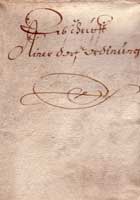 Abschrifft
Einer dorf ordnung